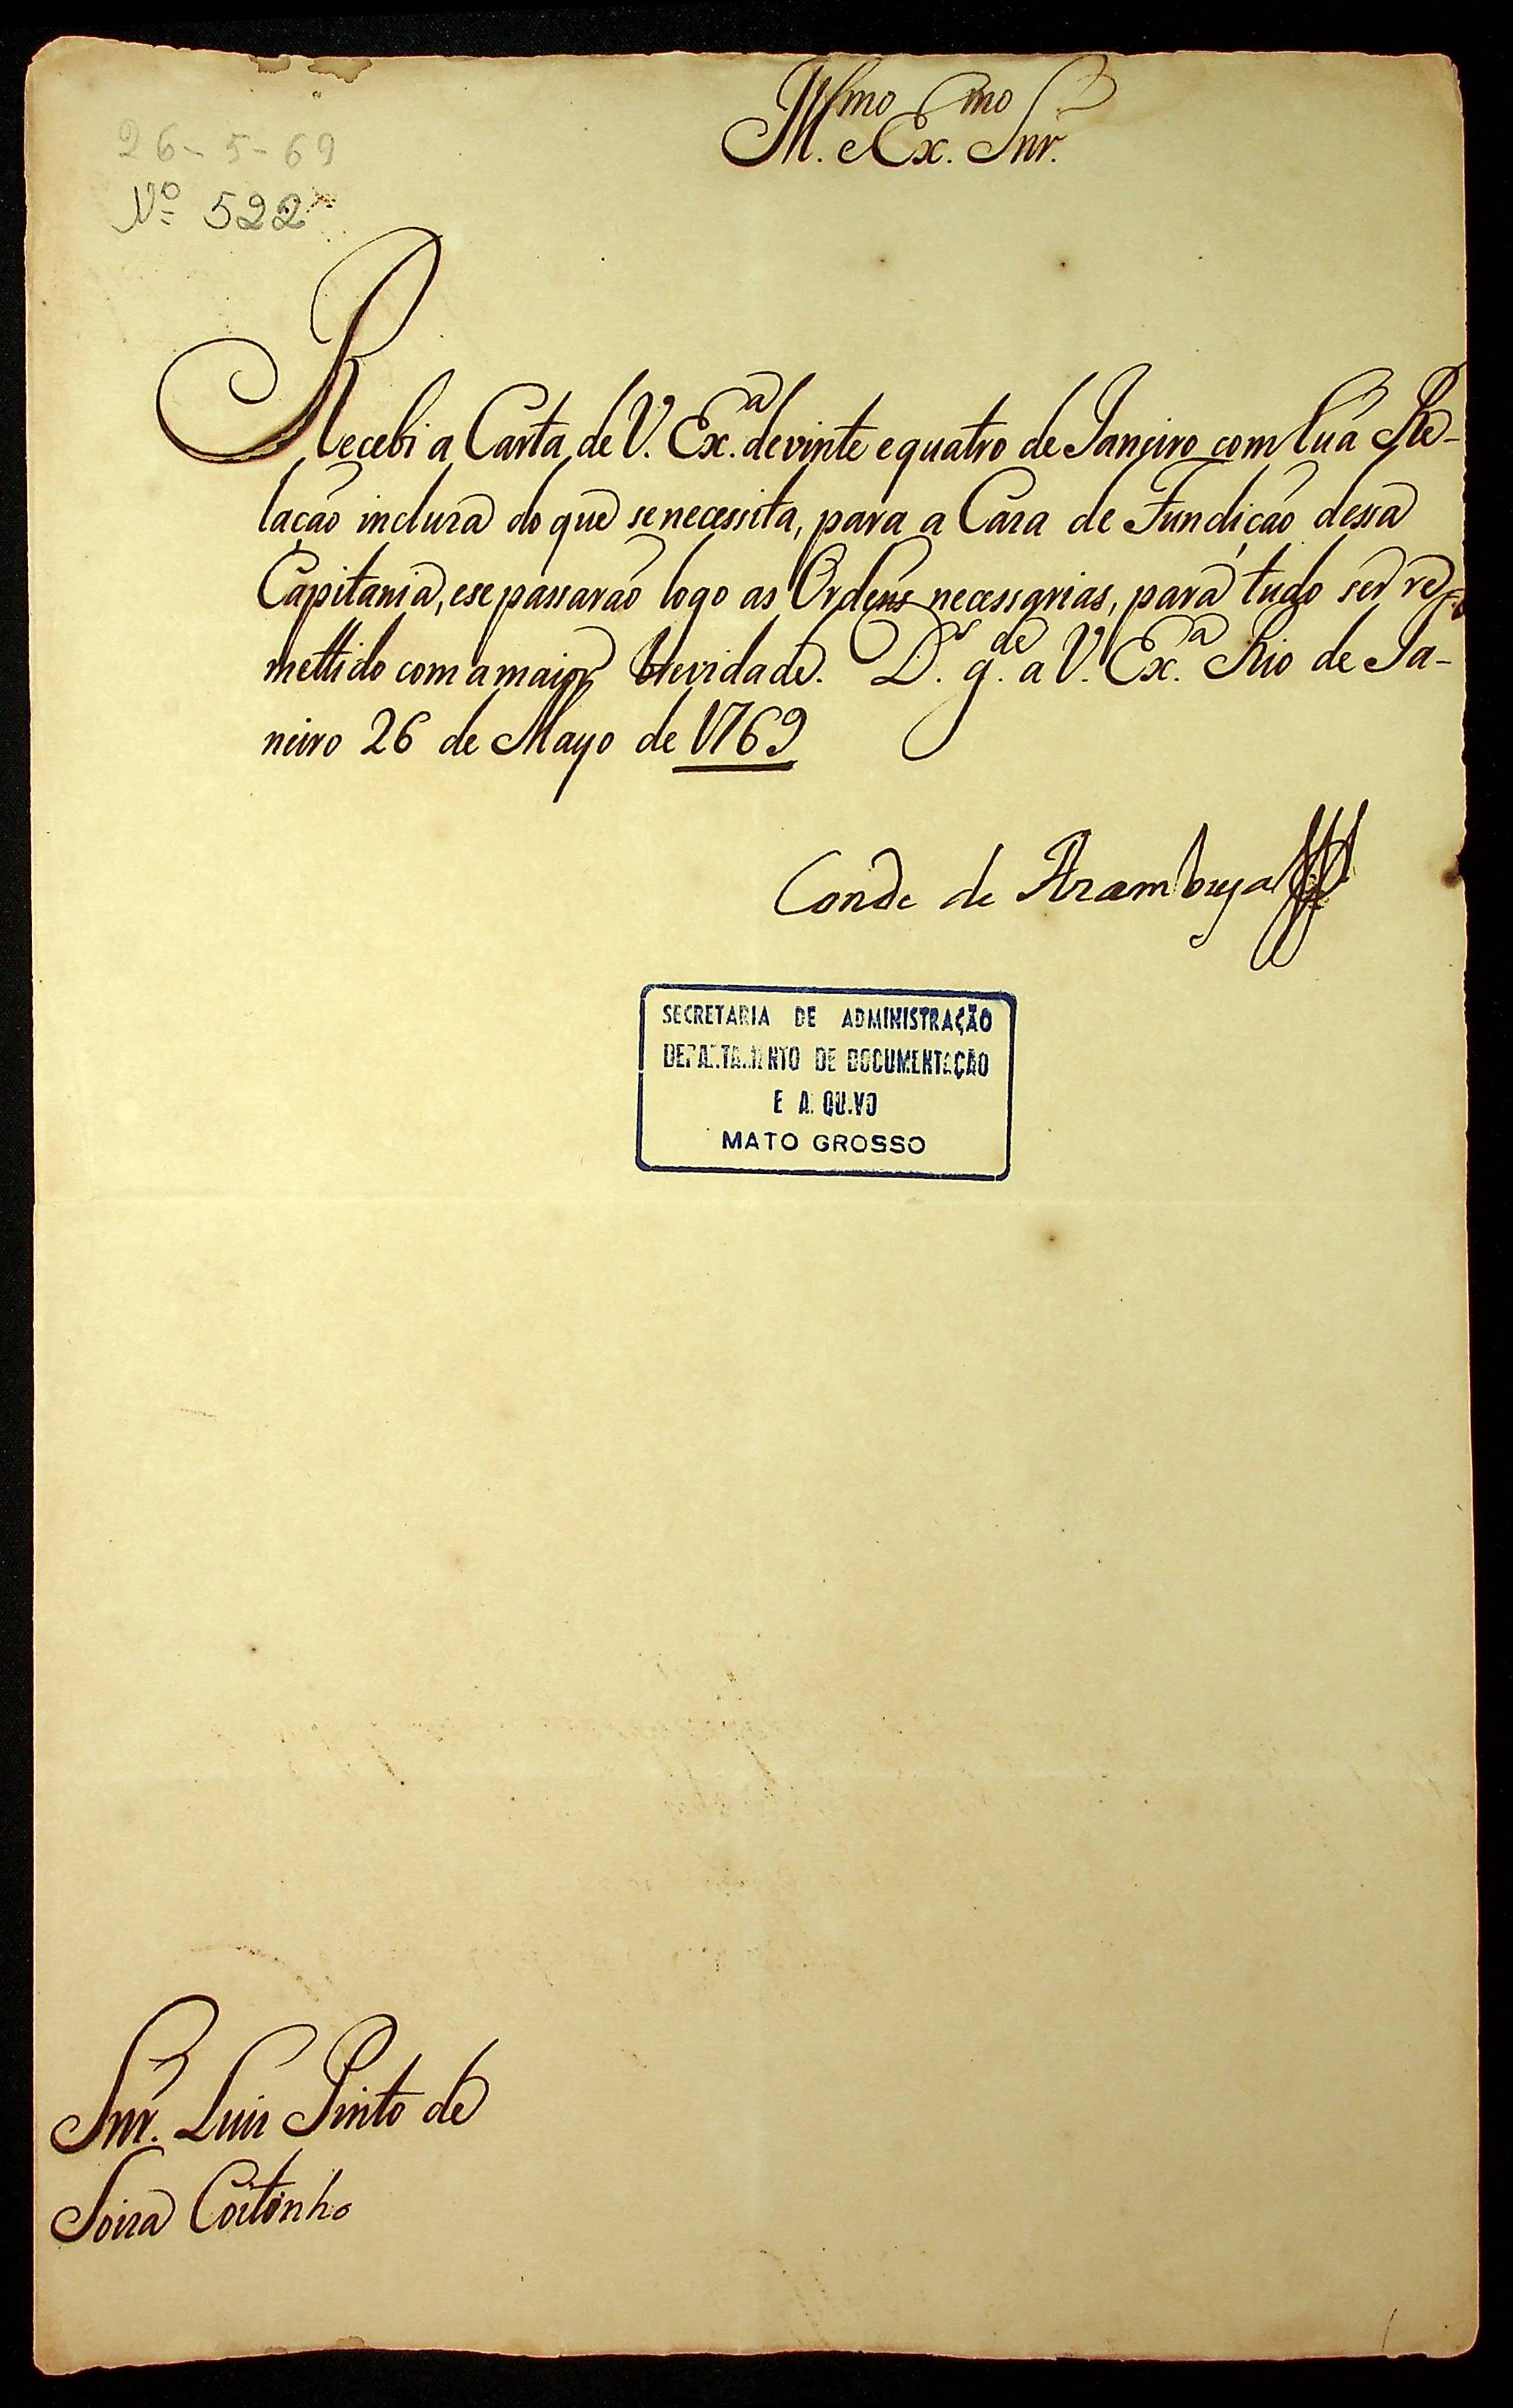 Ill.mo e Ex.mo Snr.
26-5-69
Nº 522
Recebi a Carta de V. Ex.a de vinte e quatro de Janeiro com huã Re-
lação incluza do que se necessita, para a Caza de Fundição dessa
Capitania, e se passarão logo as Ordens necessarias, para tudo ser re-
mettido com a maior brevidade. D.s g.de a V. Ex.a Rio de Ja-
neiro 26 de Mayo de 1769
Conde de Azambuja
SECRETARIA DE ADMINISTRAÇÃO
DEPARTAMENTO DE DOCUMENTAÇÃO
E ARQUIVO
MATO GROSSO
Snr. Luiz Pinto de
Soiza Coitinho